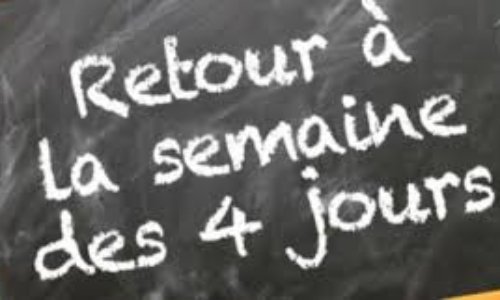 Retour à
la semaine
des 4 jours